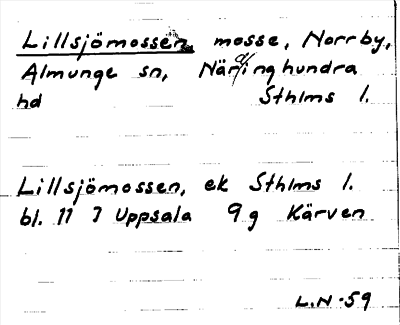 Lillsjömossen, mosse, Norrby,
Almunge sn, Närdinghundra
hd Sthlms l.
Lillsjömossen, ek Sthlms l.
bl. 11 I Uppsala 9g Kärven
L.N -59